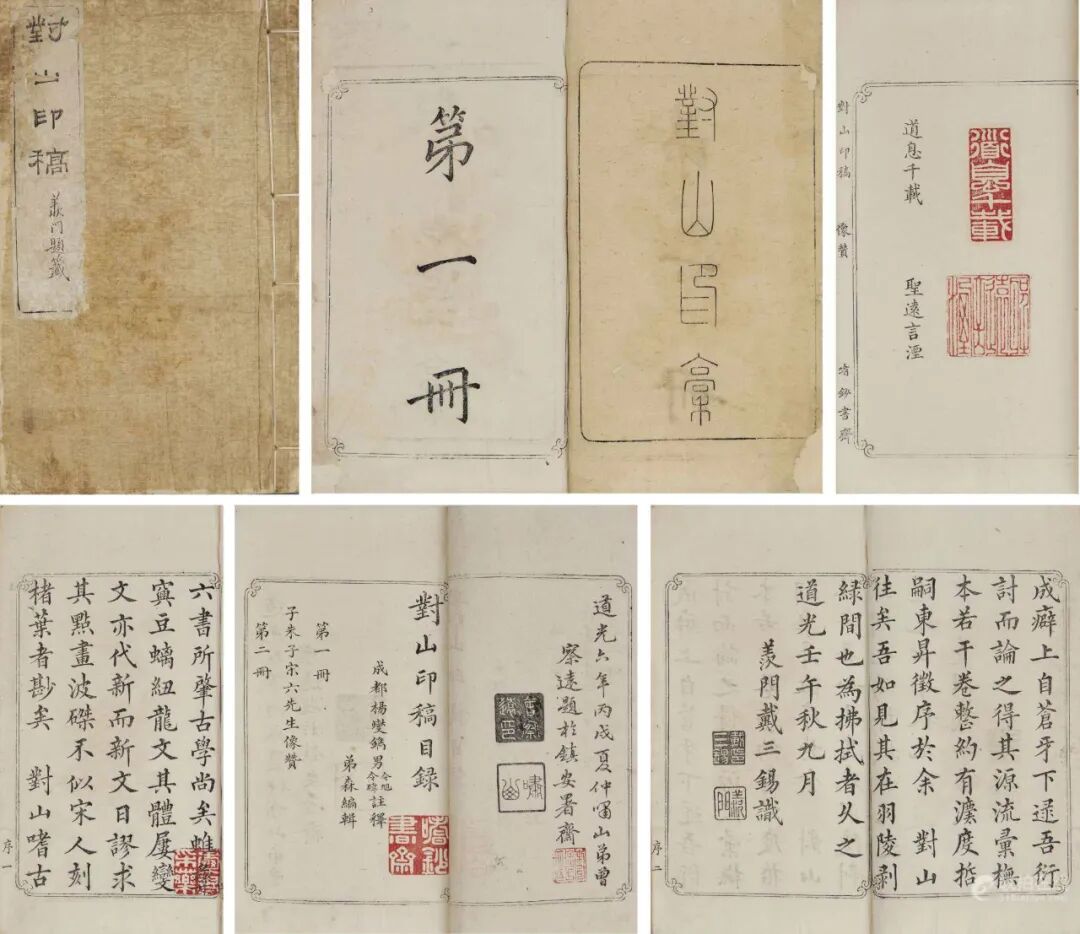 對山印稿
羨門題籤
對山印稾
第一冊
對山印稿
像贊
有鈔書齋
道息千載
聖遠言湮
道息千載
六書所肇古學尚矣
寅豆螭紐龍文其體屢變
文亦代新而新文日謬求
其點畫波磔不似宋人刻
楮葉者尠矣 對山嗜古
序一
道光六年丙戌夏仲
山弟曾
察遠題於鎮安署齋
嘯山
對山印稿目錄
成都楊燮鐫男
令旭
令暐
註釋
弟森編輯
第一冊
子朱子宋六先生像贊
第二冊
書齋
成癖上自蒼牙下逮吾衍
討而論之得其源流彙橅
本若干卷整約有瀍度哲
嗣東昇徵序於余 對山
往矣吾如見其在羽陵剥
緑間也為拂拭者久之
道光壬午秋九月
羨門戴三錫識
序二